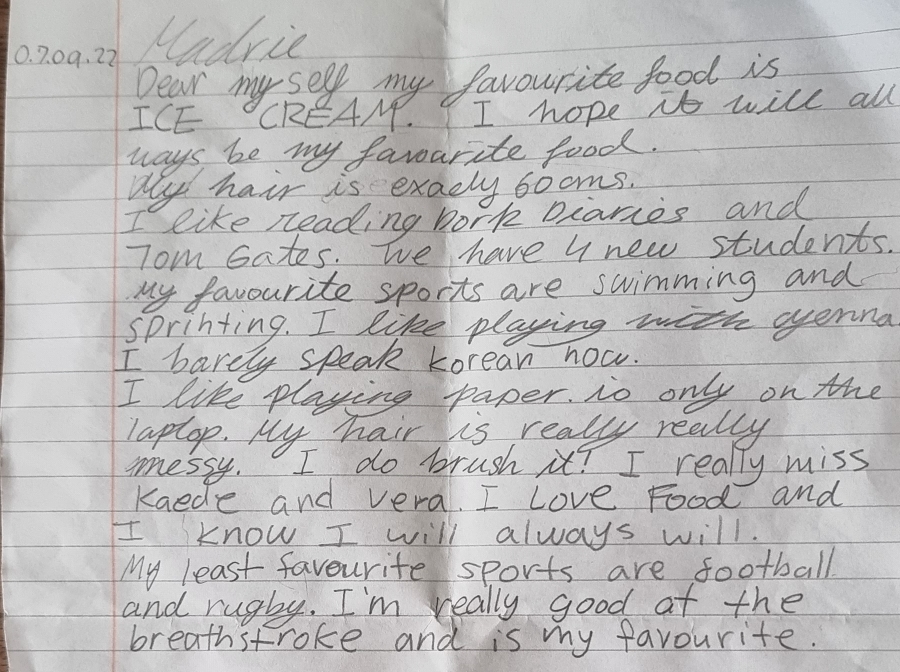 0.7.09.22 Madrie
Dear my self my favourite food is
ICE CREAM. I hope it will all
ways be my favourite food.
My hair is exaely 60cms.
I like reading Dork Diaries and
Tom Gates. We have 4 new students.
My favourite sports are swimming and
sprihting. I like playing with gyenna
I barely speak korean now.
I like playing paper.io only on the
laptop. My hair is really really
messy. I do brush it! I really miss
Kaede and Vera. I Love Food and
I know I will always will.
My least favourite sports are football
and rugby. I'm really good at the
breathstroke and is my favourite.